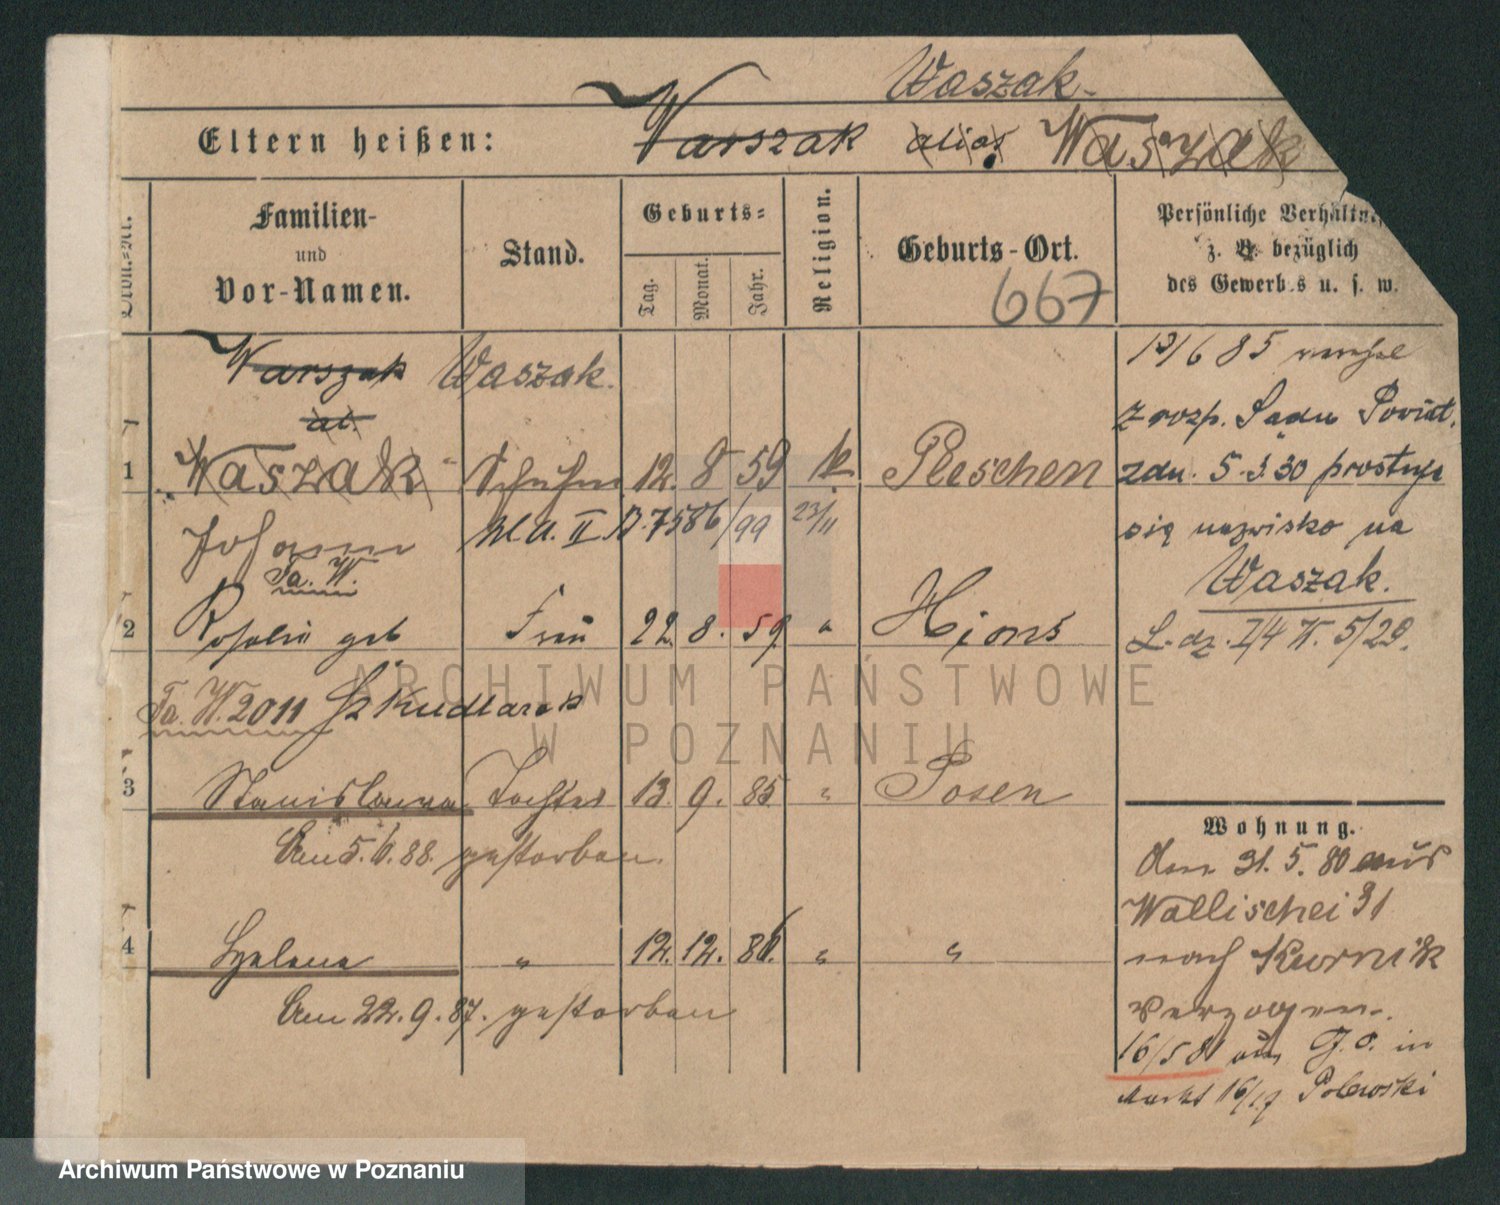 Waszak.
Eltern heißen: Warszak alias Waszak
Ordn.-Nr.
Familien-
und
Vor-Namen.
Stand.
Geburts-
Tag.
Monat.
Jahr.
Religion.
Geburts-Ort.
667
Persönliche Verhältn
z. B. bezüglich
des Gewerbes u. s. w.
Warszak Waszak.
al.
1 Waszak Schuhm 12. 8 59 k Pleschen
Johann M. A. II. B. 7586/99 23/11
Fa. W.
2 Rosalie geb Frau 22. 8. 59 " Hions
Fa. W. 2011 Szkudlarek
3 Stanislawa Tochter 13. 9. 85 " Posen
Am 5. 6. 88. gestorben.
4 Helena " 12. 12. 86. " "
Am 22. 9. 87. gestorben
z rozp. Sądu Powiat.
zdn. 5.3.30 prostuje
się nazwisko na
Waszak.
L. dz. I/4 W. 5/29.
Wohnung.
Den 31. 5. 80 aus
Wallischei 31
nach Kurnik
verzogen.
16/5 81 aus G. O. in
Markt 16/17
ARCHIWUM PAŃSTWOWE
W POZNANIU
Archiwum Państwowe w Poznaniu